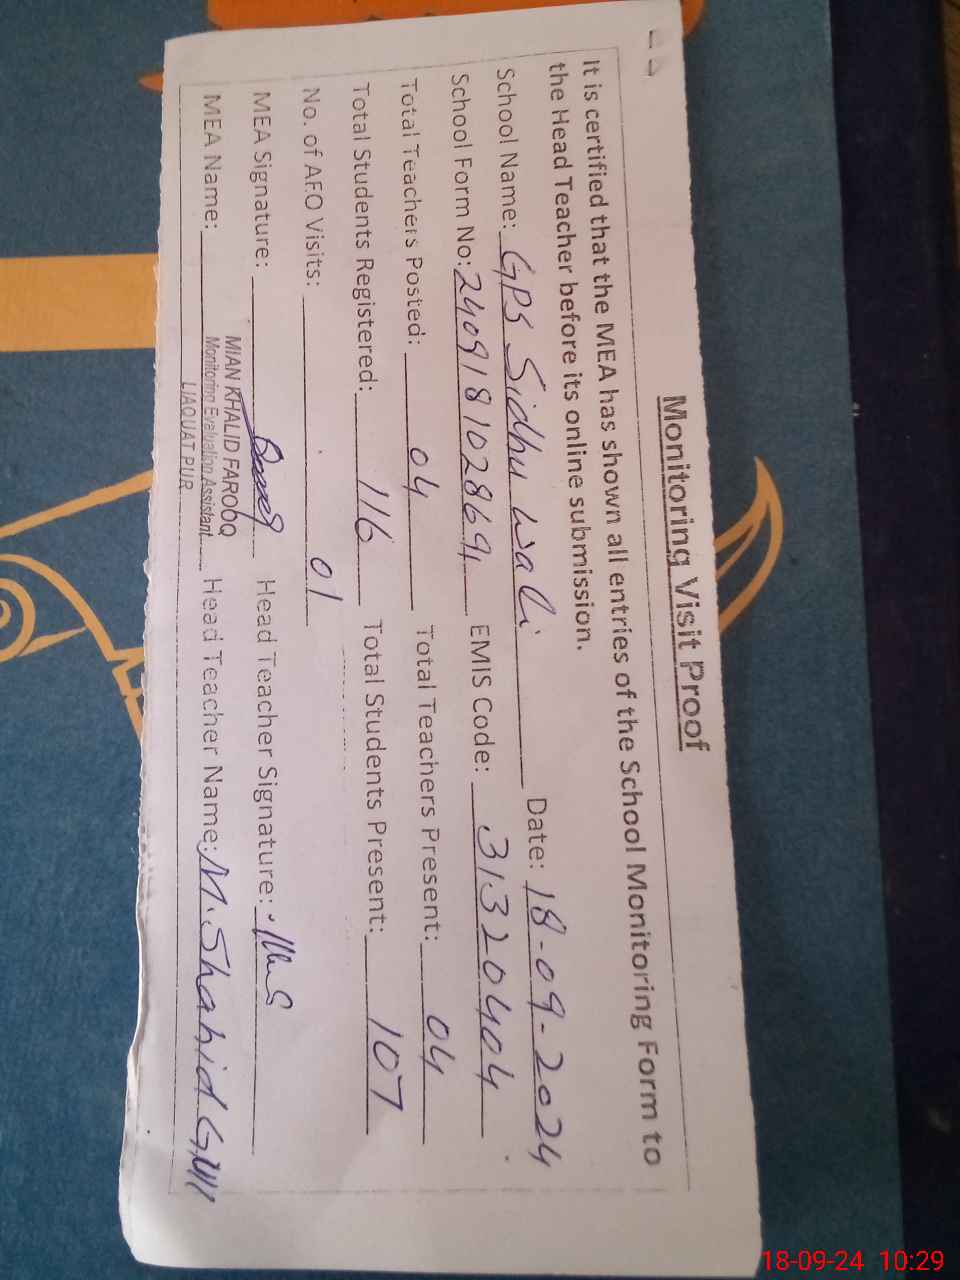 Monitoring Visit Proof
It is certified that the MEA has shown all entries of the School Monitoring Form to
the Head Teacher before its online submission.
School Name: GPS Sidhu Wali Date: 18-09-2024
School Form No: 2409181028691 EMIS Code: 31320404
Total Teachers Posted: 04 Total Teachers Present: 04
Total Students Registered: 116 Total Students Present: 107
No. of AEO Visits: 01
MEA Signature: Head Teacher Signature:
MIAN KHALID FAROOQ
MEA Name: Monitoring Evaluation Assistant Head Teacher Name: M. Shahid Gull
LIAQUAT PUR
18-09-24 10:29